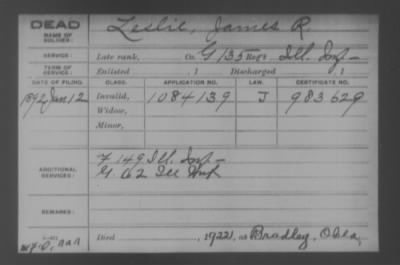 DEAD
NAME OF SOLDIER: Leslie, James R.
SERVICE: Late rank, Co. G 135 Reg't Ill. Inf-
TERM OF SERVICE: Enlisted , 1 Discharged , 1
DATE OF FILING. CLASS. APPLICATION NO. LAW. CERTIFICATE NO.
1892 Jan. 12 Invalid, 1084139 J 983629
Widow,
Minor,
ADDITIONAL SERVICES: F 149 Ill. Inf-
G 62 Ill Inf
REMARKS:
Died , 1922, at Bradley, Okla,